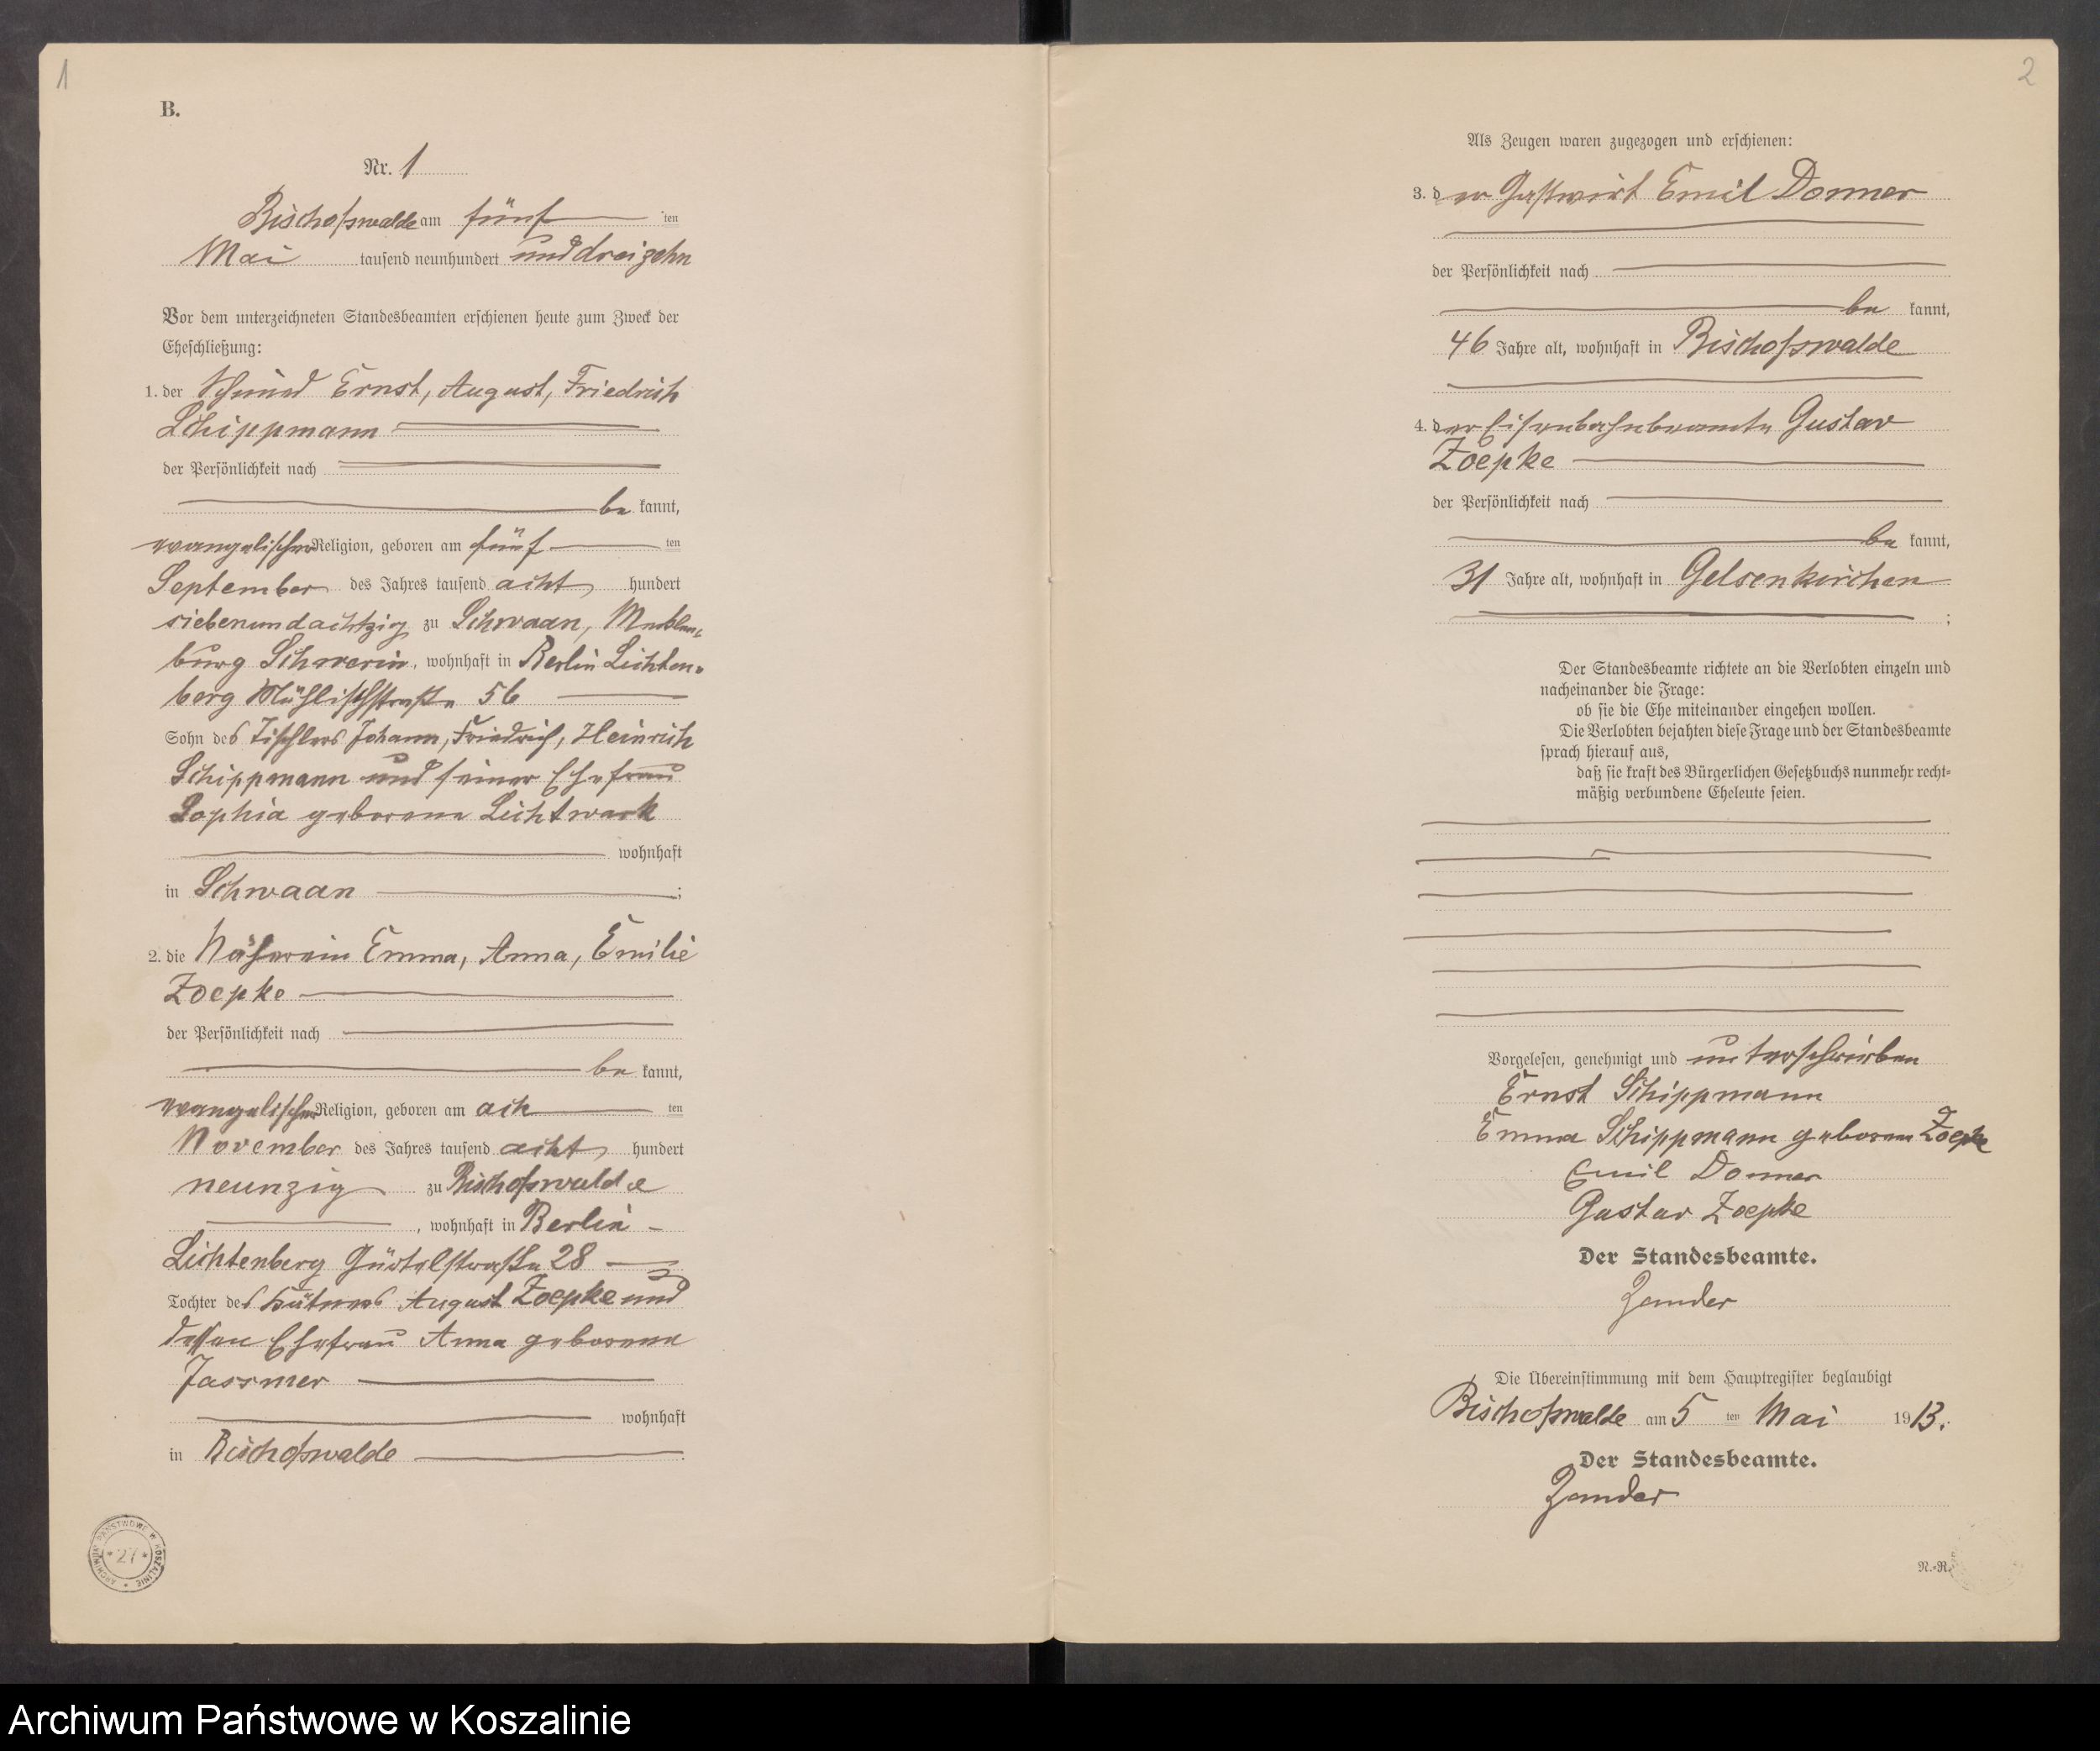 1
B.
Nr. 1
Bischofswalde am fünf ten
Mai tausend neunhundert und dreizehn
Vor dem unterzeichneten Standesbeamten erschienen heute zum Zweck der
Eheschließung:
1. der Schmied Ernst, August, Friedrich
Schippmann
der Persönlichkeit nach
be kannt,
evangelischer Religion, geboren am fünf ten
September des Jahres tausend acht hundert
siebenundachtzig zu Schwaan, Mecklen-
burg Schwerin, wohnhaft in Berlin Lichten-
berg Müglischstraße 56
Sohn des Tischlers Johann, Friedrich, Heinrich
Schippmann und seiner Ehefrau
Sophia geborene Lichtwark
wohnhaft
in Schwaan ;
2. die Näherein Emma, Anna, Emilie
Zoepke
der Persönlichkeit nach
be kannt,
evangelischer Religion, geboren am ach ten
November des Jahres tausend acht hundert
neunzig zu Bischofswalde
, wohnhaft in Berlin -
Lichtenberg Gürtelstraße 28
Tochter des August Zoepke und
dessen Ehefrau Anna geborene
Jassmer
wohnhaft
in Bischofswalde .
ARCHIWUM PAŃSTWOWE W KOSZALINIE * 27 *
2
Als Zeugen waren zugezogen und erschienen:
3. der Gastwirt Emil Donner
der Persönlichkeit nach
be kannt,
46 Jahre alt, wohnhaft in Bischofswalde
4. der Eisenbahnbeamte Gustav
Zoepke
der Persönlichkeit nach
be kannt,
31 Jahre alt, wohnhaft in Gelsenkirchen
;
Der Standesbeamte richtete an die Verlobten einzeln und
nacheinander die Frage:
ob sie die Ehe miteinander eingehen wollen.
Die Verlobten bejahten diese Frage und der Standesbeamte
sprach hierauf aus,
daß sie kraft des Bürgerlichen Gesetzbuchs nunmehr recht-
mäßig verbundene Eheleute seien.
Vorgelesen, genehmigt und unterschrieben
Ernst Schippmann
Emma Schippmann geborene Zoepke
Emil Donner
Gustav Zoepke
Der Standesbeamte.
Zander
Die Übereinstimmung mit dem Hauptregister beglaubigt
Bischofswalde am 5 ten Mai 1913.
Der Standesbeamte.
Zander
N.-R.
Archiwum Państwowe w Koszalinie